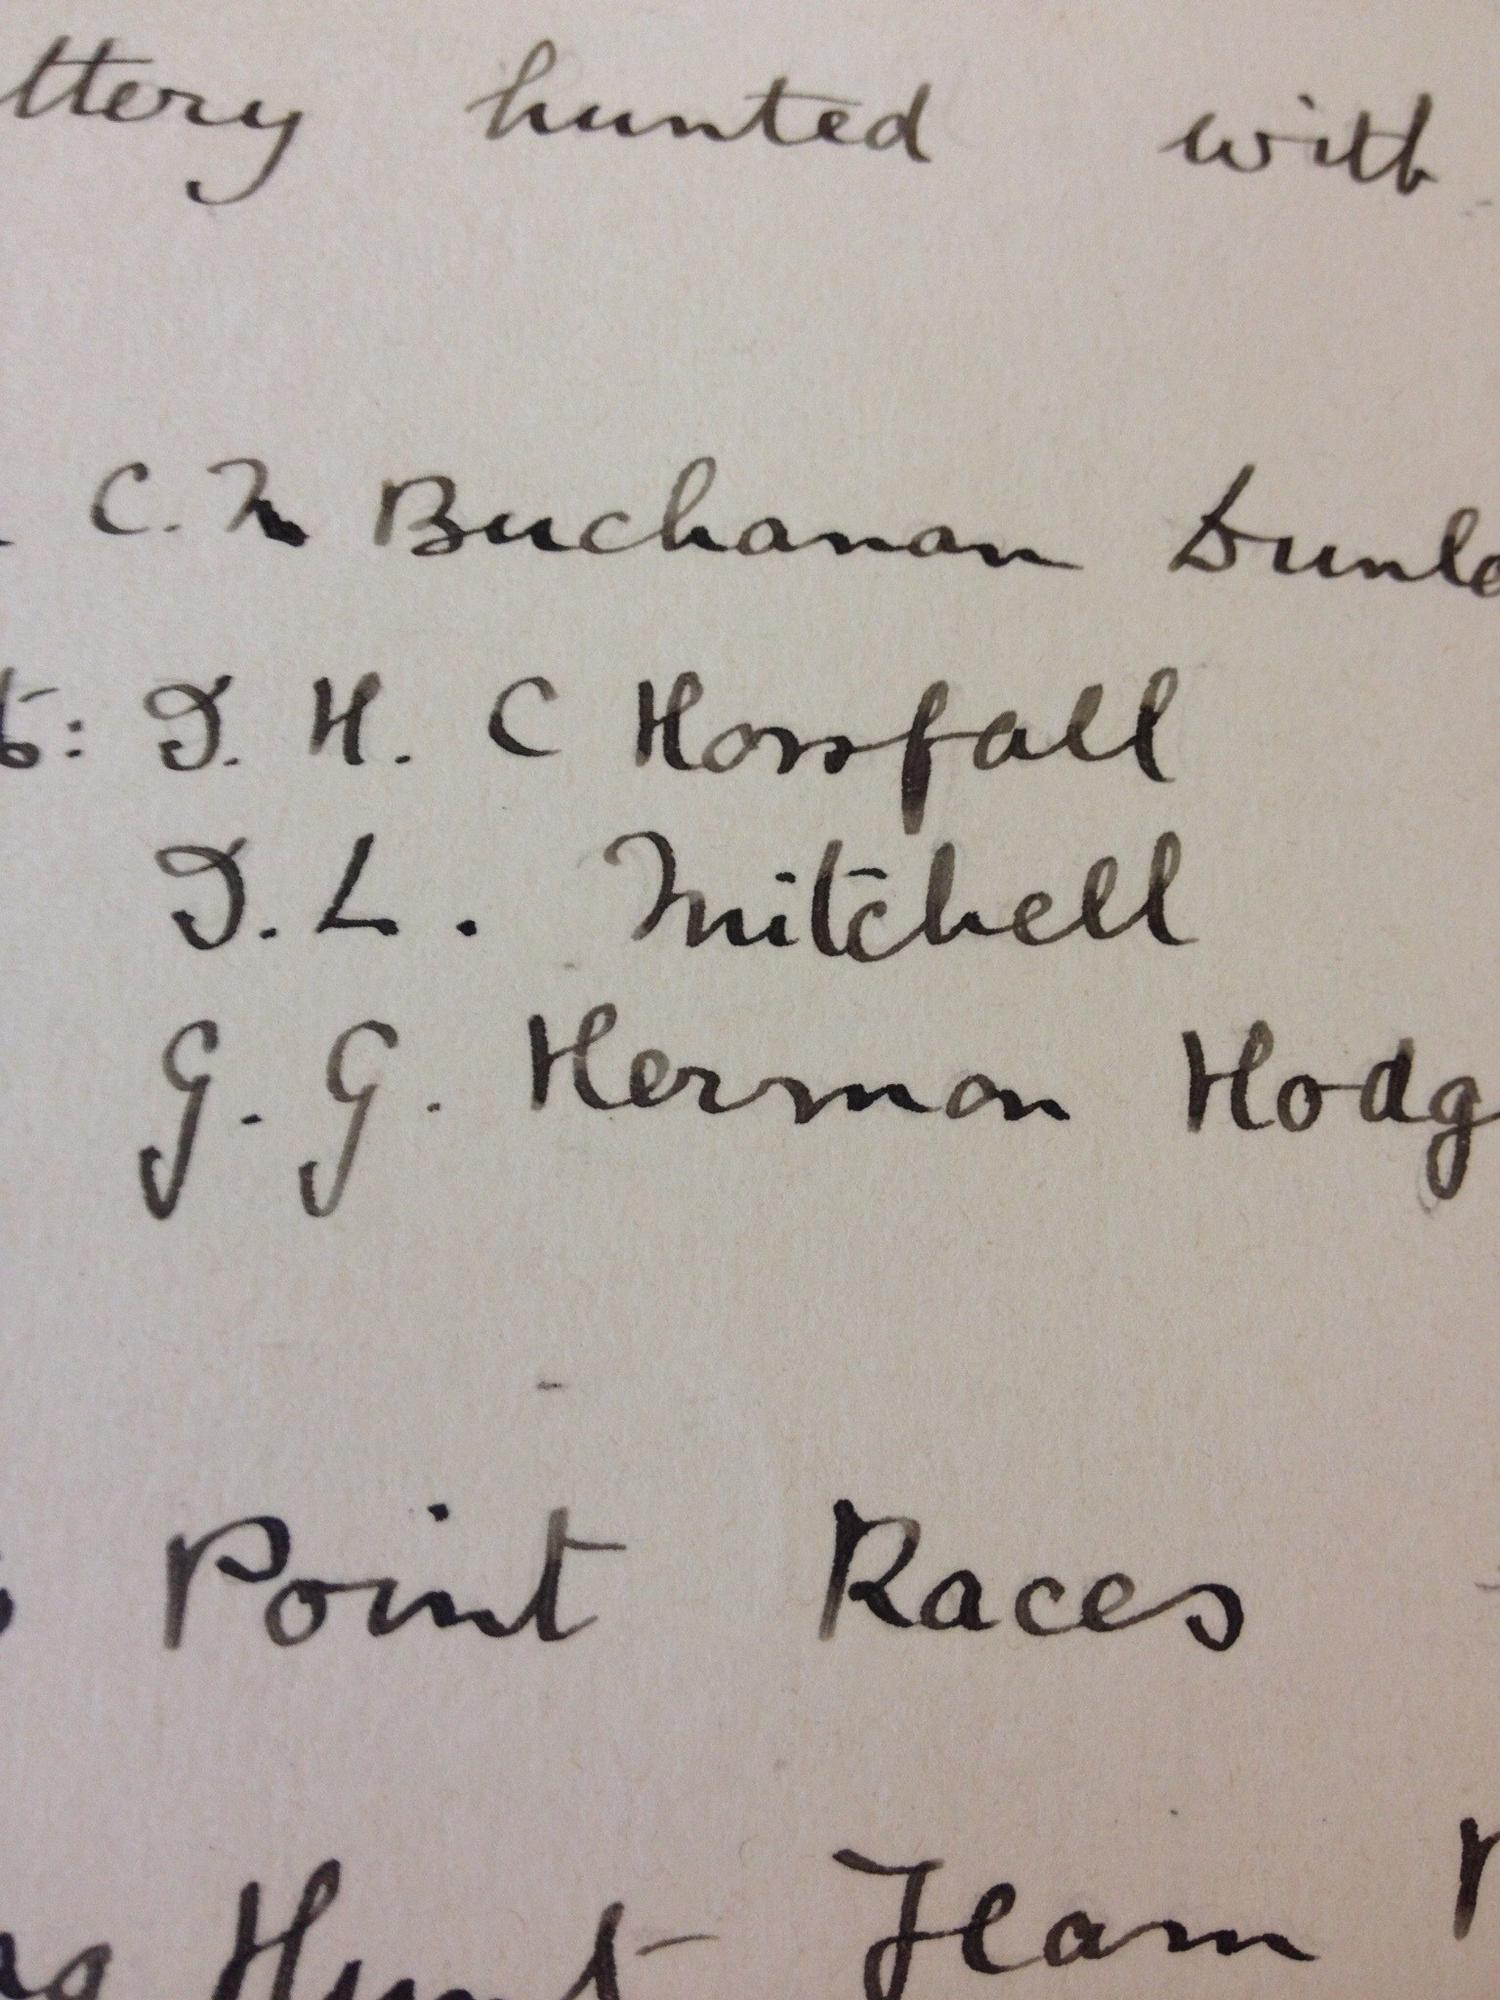 ttery hunted with
C. N Buchanan Dunlo
t: D. H. C Horsfall
D. L. Mitchell
G. G. Herman Hodg
Point Races
ng Hunt Team